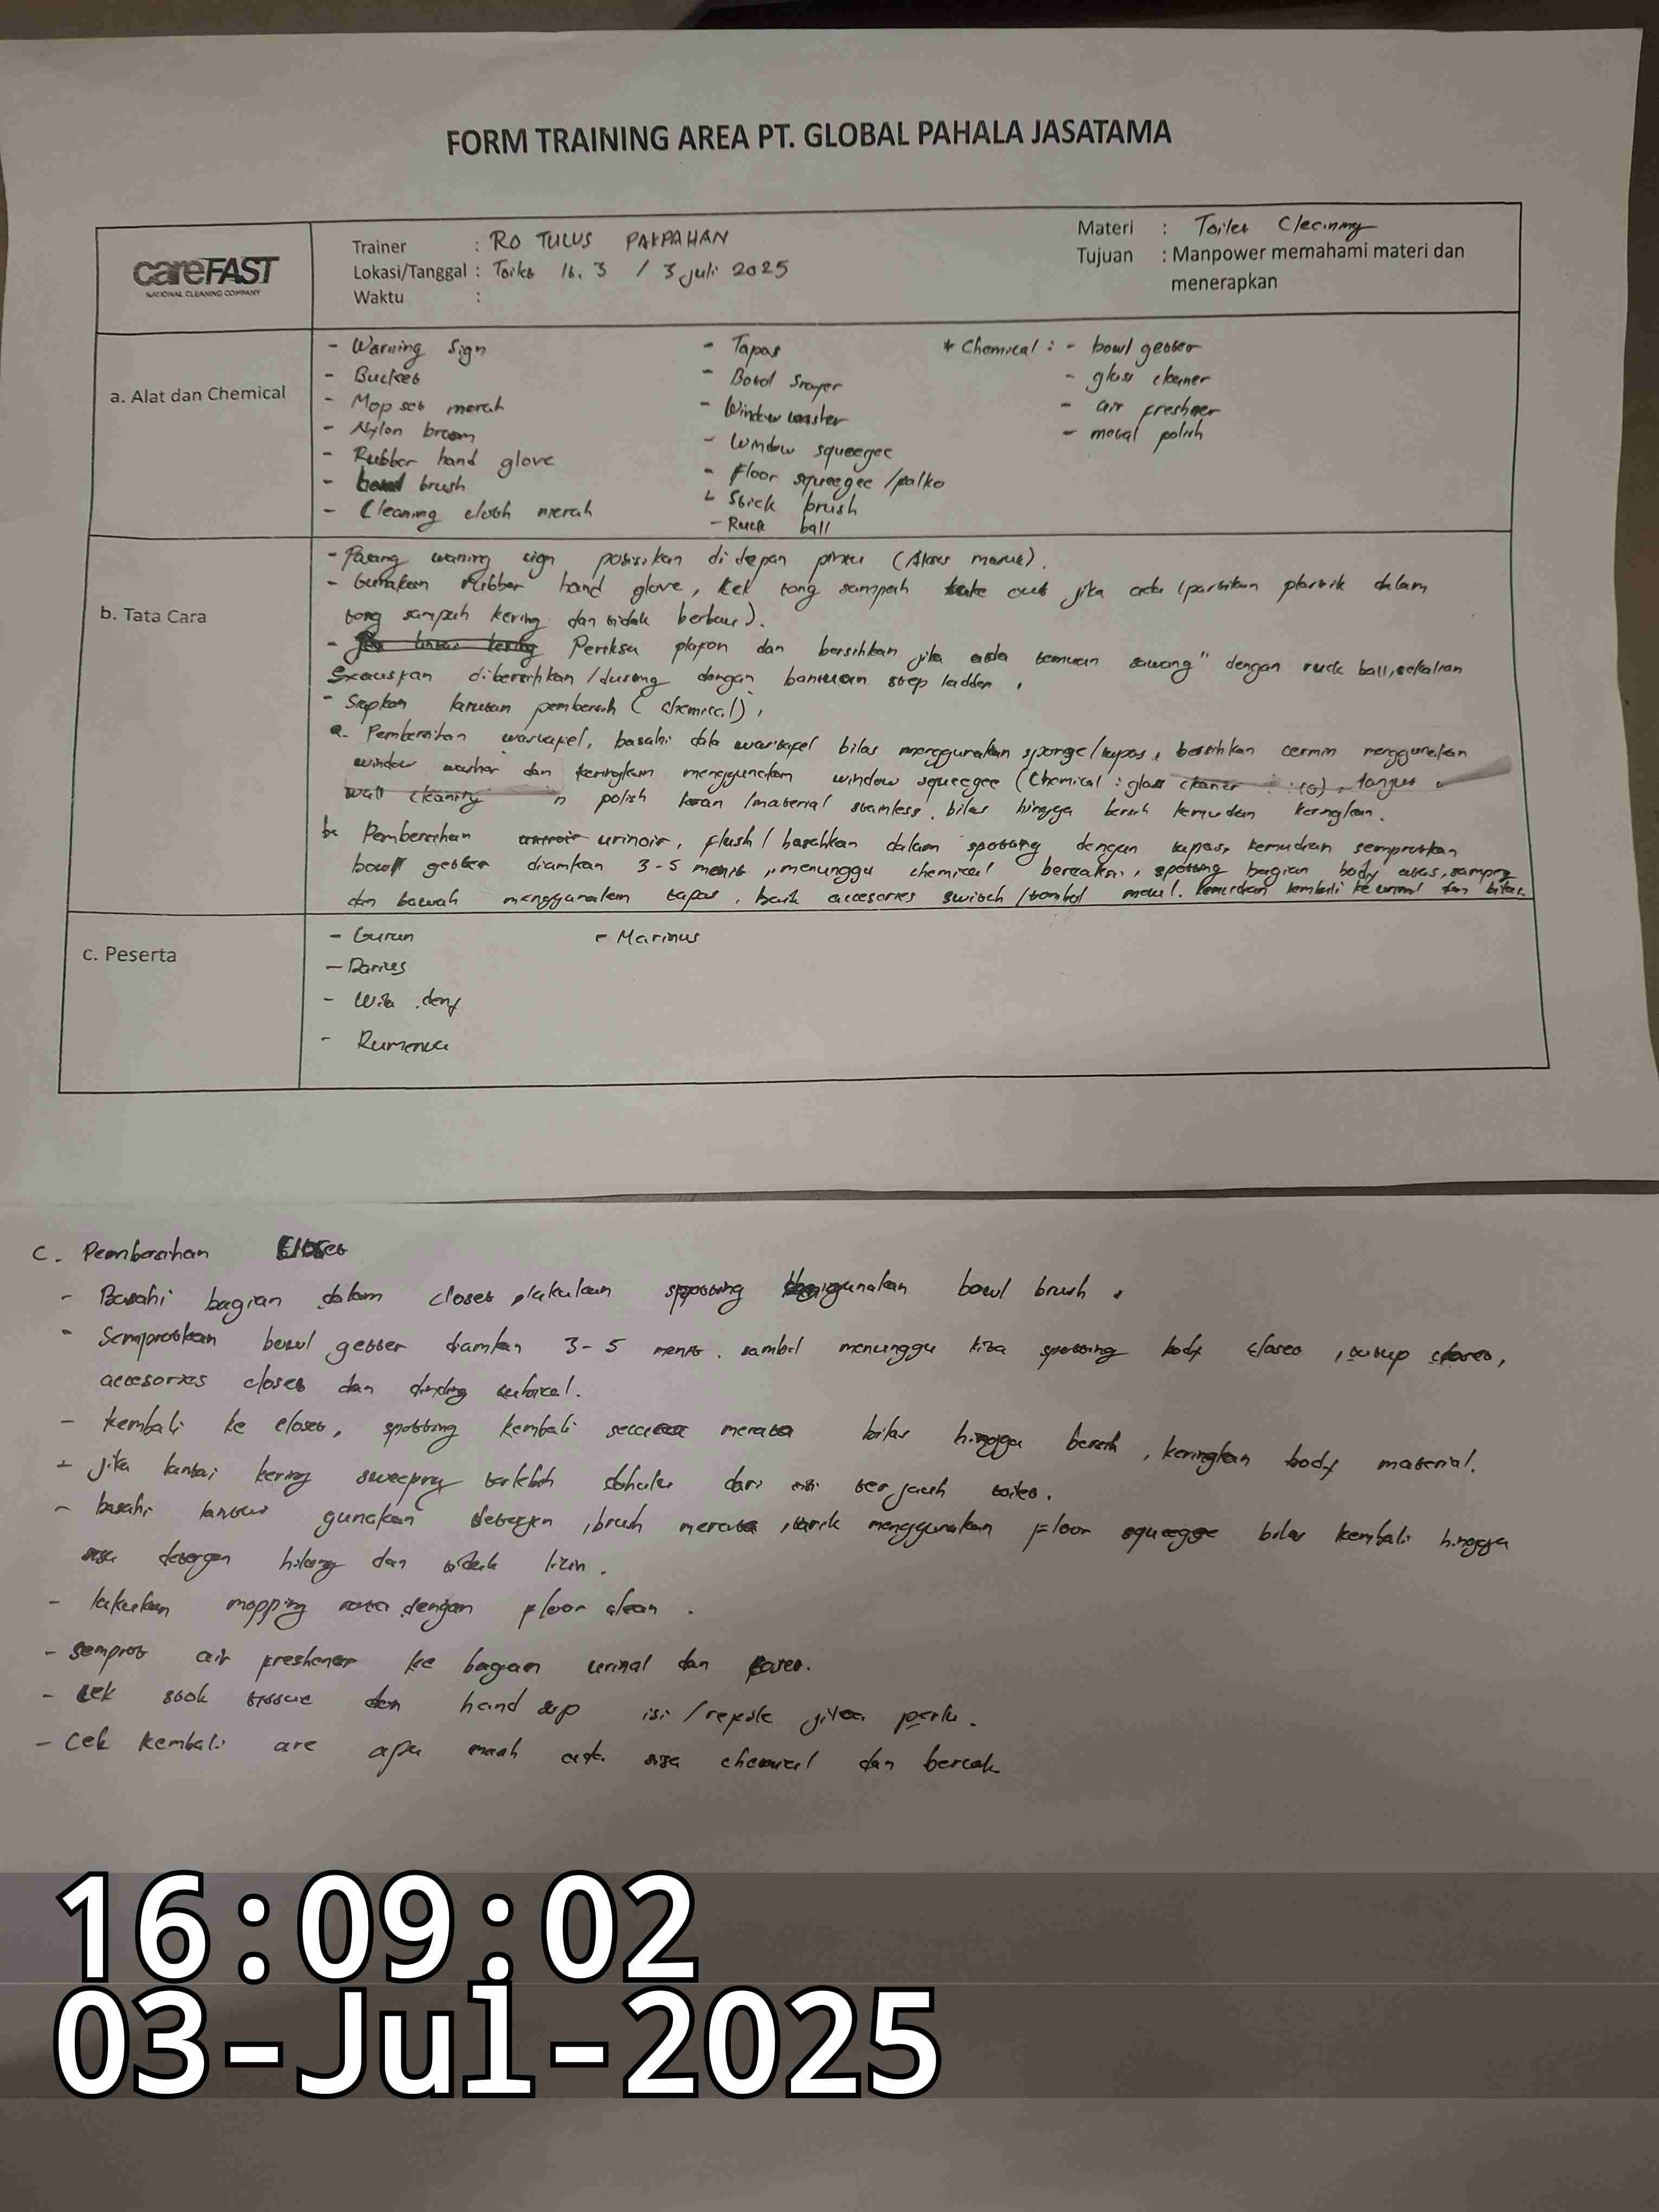 FORM TRAINING AREA PT. GLOBAL PAHALA JASATAMA
careFAST
NATIONAL CLEANING COMPANY
Trainer : RO TULUS PAKPAHAN
Lokasi/Tanggal : Toilet 16.3 / 3 juli 2025
Waktu :
Materi : Toilet Cleaning
Tujuan : Manpower memahami materi dan
menerapkan
a. Alat dan Chemical
- Warning Sign
- Bucket
- Mop set merah
- Nylon broom
- Rubber hand glove
- bowl brush
- Cleaning cloth merah
- Tapas
- Botol Srayer
- Window washer
- Window squeegee
- Floor squeegee /palko
- Stick brush
- Ruck ball
* Chemical : - bowl getter
- glass cleaner
- air freshner
- metal polish
b. Tata Cara
- Pasang waning sign posisikan di depan pintu (Akses masuk).
- Gunakan rubber hand glove, Cek tong sampah take out jika ada (pastikan plastik dalam
tong sampah kering dan tidak berbau).
- Periksa plafon dan bersihkan jika ada temuan sawang" dengan ruck ball, sekalian
Exouskan dibersihkan /dusting dengan bantuan step ladder,
- Siapkan larutan pembersih (chemical),
a. Pembersihan wastapel, basahi dala wastapel bilas menggunakan sponge/tapas, bersihkan cermin menggunakan
window washer dan keringkan menggunakan window squeegee (Chemical : glass cleaner
polish kran /material stainless, bilas hingga bersih kemudian keringkan.
b. Pembersihan urinoir, flush / basahkan dalam spotting dengan tapas, kemudian semprotkan
bowl getter diamkan 3-5 menit, menunggu chemical bereaksi, spotting bagian body atas, samping
dan bawah menggunakan tapas, baik accesories switch /tombol manual. Kemudian kembali ke urinal dan bilas.
c. Peseta
- Gurun
- Darius
- Wita deny
- Marinus
C. Pembersihan Closet
- Basahi bagian dalam closet, lakukan spotting menggunakan bowl brush.
- Semprotkan bowl getter diamkan 3-5 menit. sambil menunggu kita spotting body closet, tutup closet,
accesories closet dan dinding cubical.
- kembali ke closet, spotting kembali secara merata bilas hingga bersih, keringkan body material.
- jika lantai kering sweeping terlebih dahulu dari sisi terjauh toilet.
- basahi lantai gunakan detergen, brush merata, tarik menggunakan floor squeegee bilas kembali hingga
sisa detergen hilang dan tidak licin.
- lakukan mopping rata dengan floor clean.
- semprot air freshener ke bagian urinal dan closet.
- cek stok tissue dan hand sop isi /repile jika perlu.
- Cek kembali are apa masih ada sisa chemical dan bercak
16:09:02
03-Jul-2025